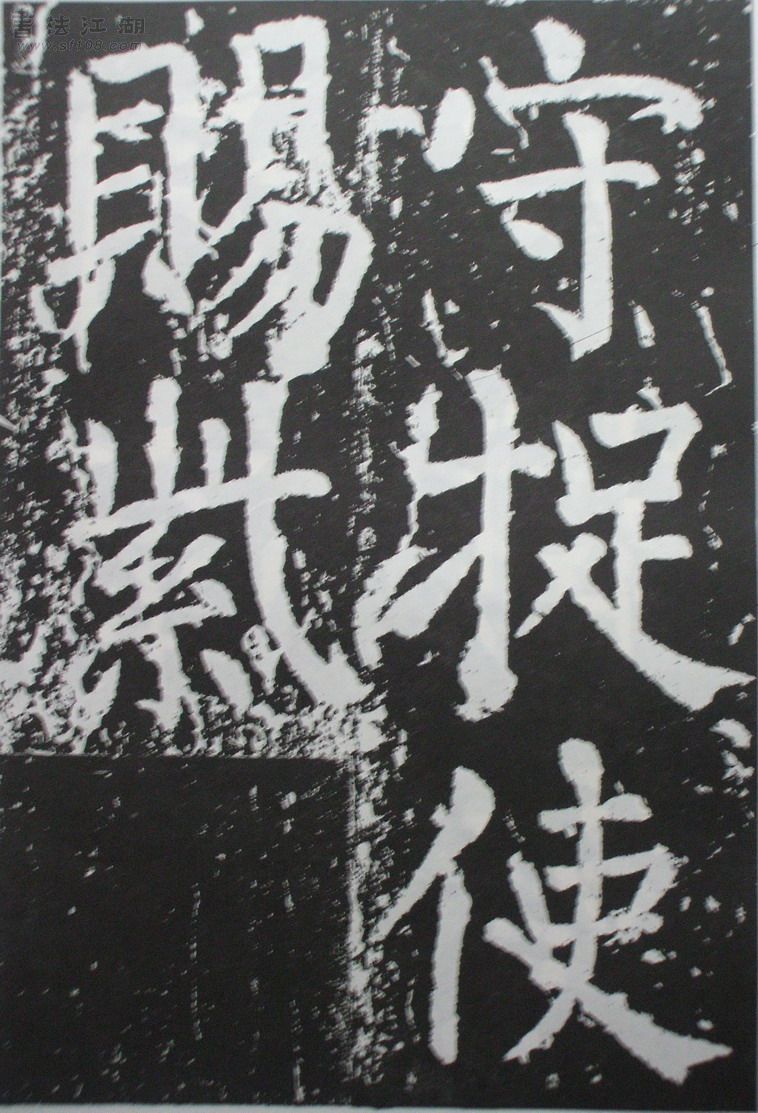 書法江湖
www.sf108.com
守捉使
賜紫